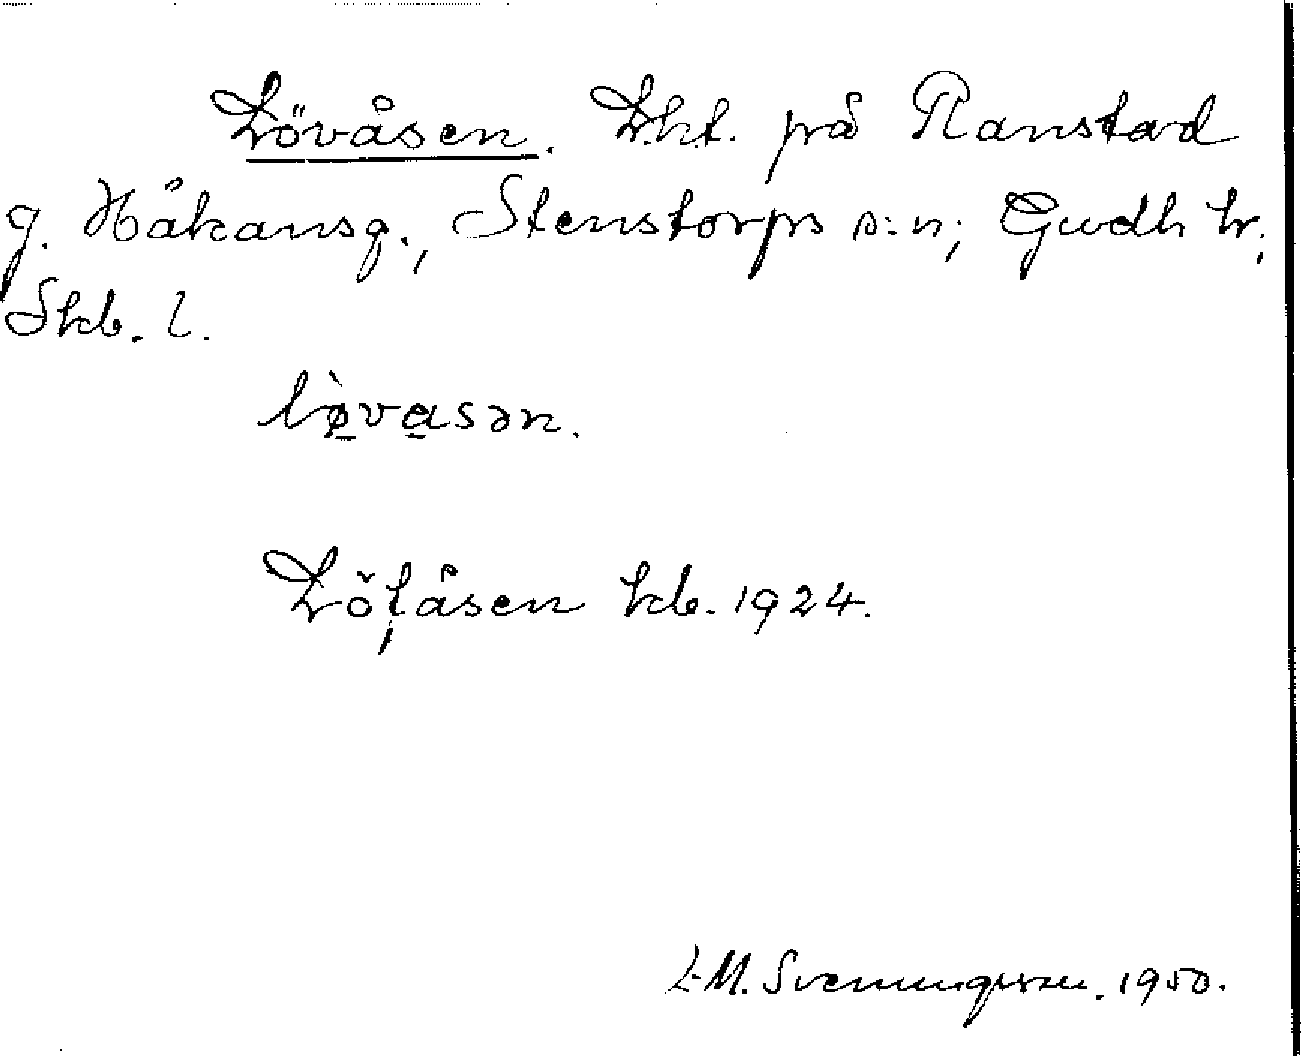 Lövåsen. Lht. på Ranstad
g. Håkansg., Stenstorps s:n; Gudh hr,
Skb. l.
lø̀vasən.
Löfåsen kb. 1924.
L-M. Svenungsson. 1950.